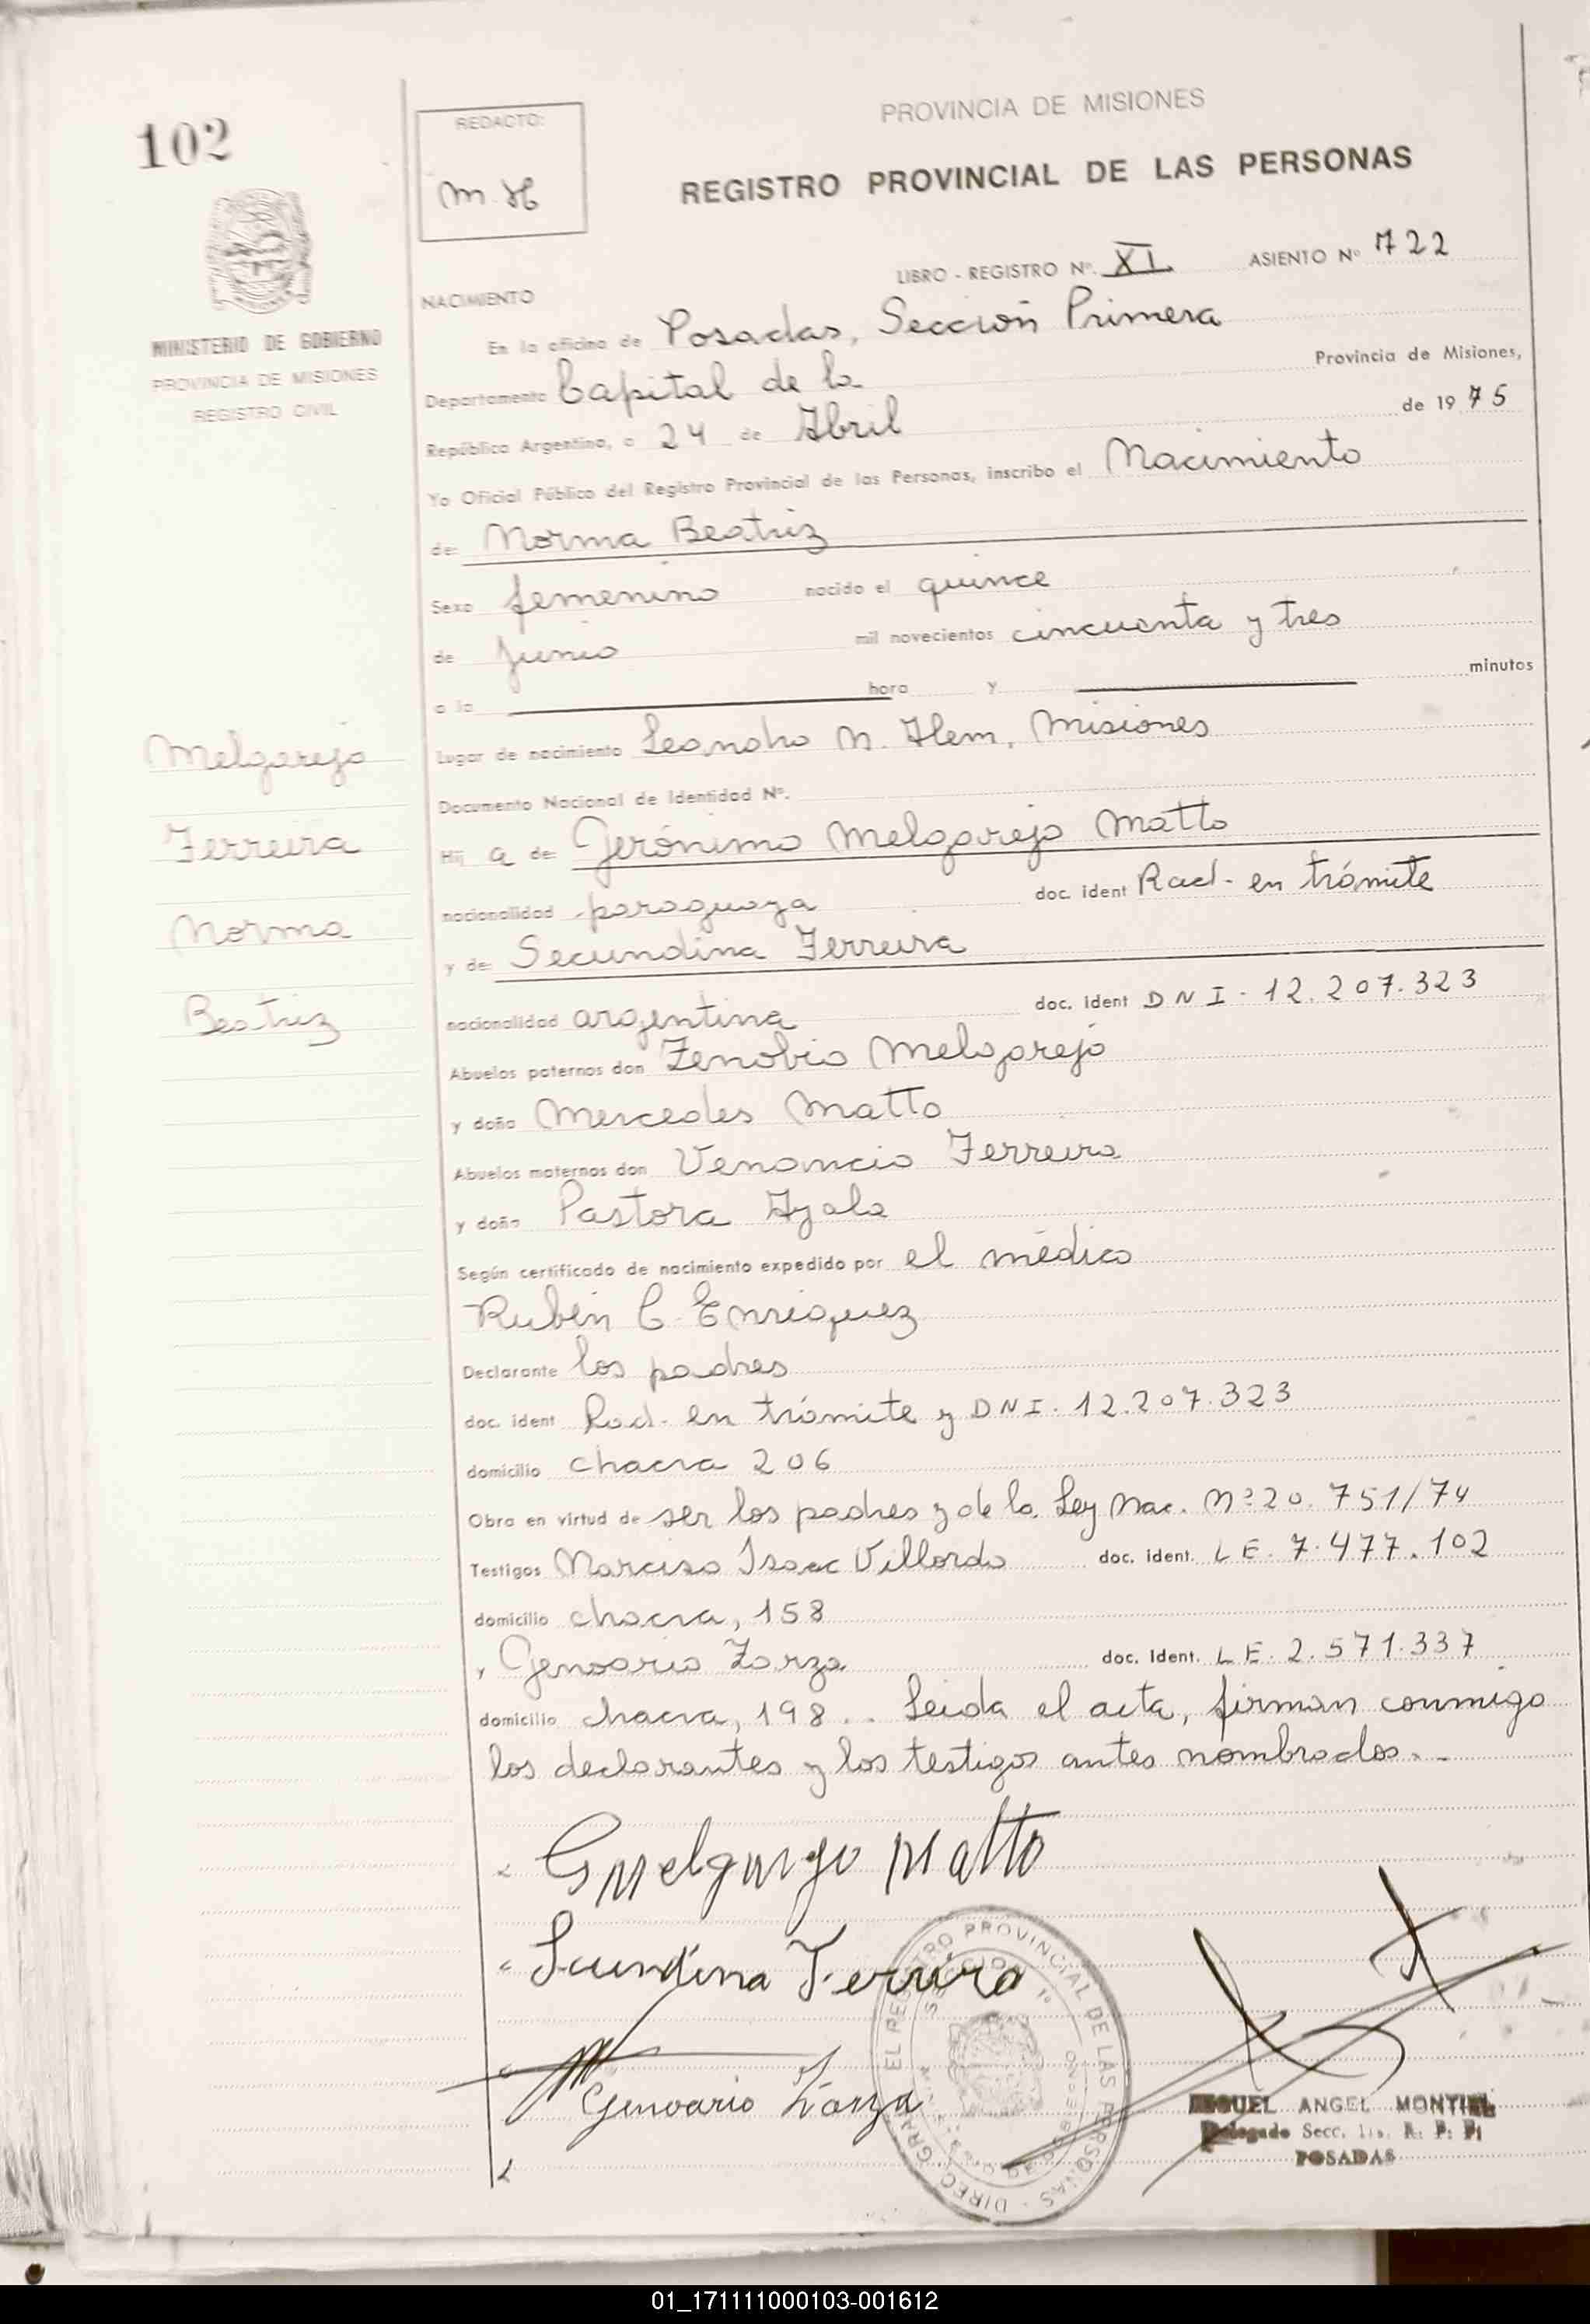 102
REDACTO:
M. H
PROVINCIA DE MISIONES
REGISTRO PROVINCIAL DE LAS PERSONAS
MINISTERIO DE GOBIERNO
PROVINCIA DE MISIONES
REGISTRO CIVIL
LIBRO - REGISTRO Nº. XI ASIENTO Nº 722
NACIMIENTO
En la oficina de Posadas, Sección Primera
Departamento Capital de la Provincia de Misiones,
República Argentina, a 24 de Abril de 1975
Yo Oficial Público del Registro Provincial de las Personas, inscribo el Nacimiento
de: Norma Beatriz
Sexo femenino nacido el quince
de junio mil novecientos cincuenta y tres
a la hora y minutos
Lugar de nacimiento Leandro N. Alem, Misiones
Documento Nacional de Identidad Nº.
Hij a de: Jerónimo Melgarejo Matto
nacionalidad paraguaya doc. ident Rad. en trámite
y de: Secundina Ferreira
nacionalidad argentina doc. ident DNI. 12.207.323
Abuelos paternos don Zenobio Melgarejo
y doña Mercedes Matto
Abuelos maternos don Venancio Ferreira
y doña Pastora Ayala
Según certificado de nacimiento expedido por el médico
Rubén C. Enriquez
Declarante los padres
doc. ident Rad. en trámite y DNI. 12.207.323
domicilio chacra 206
Obra en virtud de ser los padres y de la Ley Nac. Nº 20.751/74
Testigos Narciso Isaac Villordo doc. ident. LE. 7.477.102
domicilio chacra, 158
y Genoario Zarza doc. ident. LE. 2.571.337
domicilio chacra, 198.. Leida el acta, firman conmigo
los declarantes y los testigos antes nombrados..
Melgarejo
Ferreira
Norma
Beatriz
G Melgarejo Matto
Secundina Ferreira
Genoario Zarza
DIREC. GRAL. DEL REGISTRO PROVINCIAL DE LAS PERSONAS
SECCION 1ª
MINISTERIO DE GOBIERNO
MIGUEL ANGEL MONTIEL
Delegado Secc. 1ra. R. P. P.
POSADAS
01_171111000103-001612